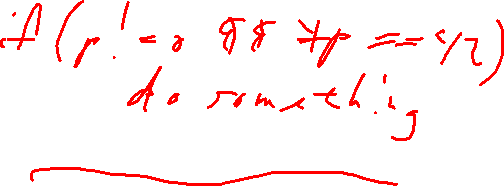 if (p != 0 && *p == 5/2)
do something